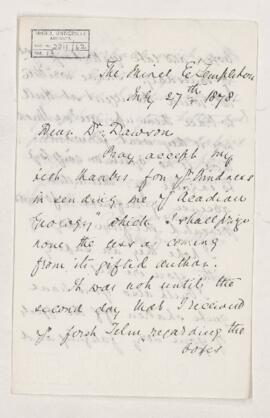 McGILL UNIVERSITY
ARCHIVES
The Mines Et Templeton
July 27th 1878.
Dear Dr. Dawson
Pray accept my
best thanks for yr kindness
in sending me yr "Acadian
Geology" which I shall prize
none the less as coming
from its gifted author.
It was not until the
second day that I received
yr first Telm regarding the
boxes